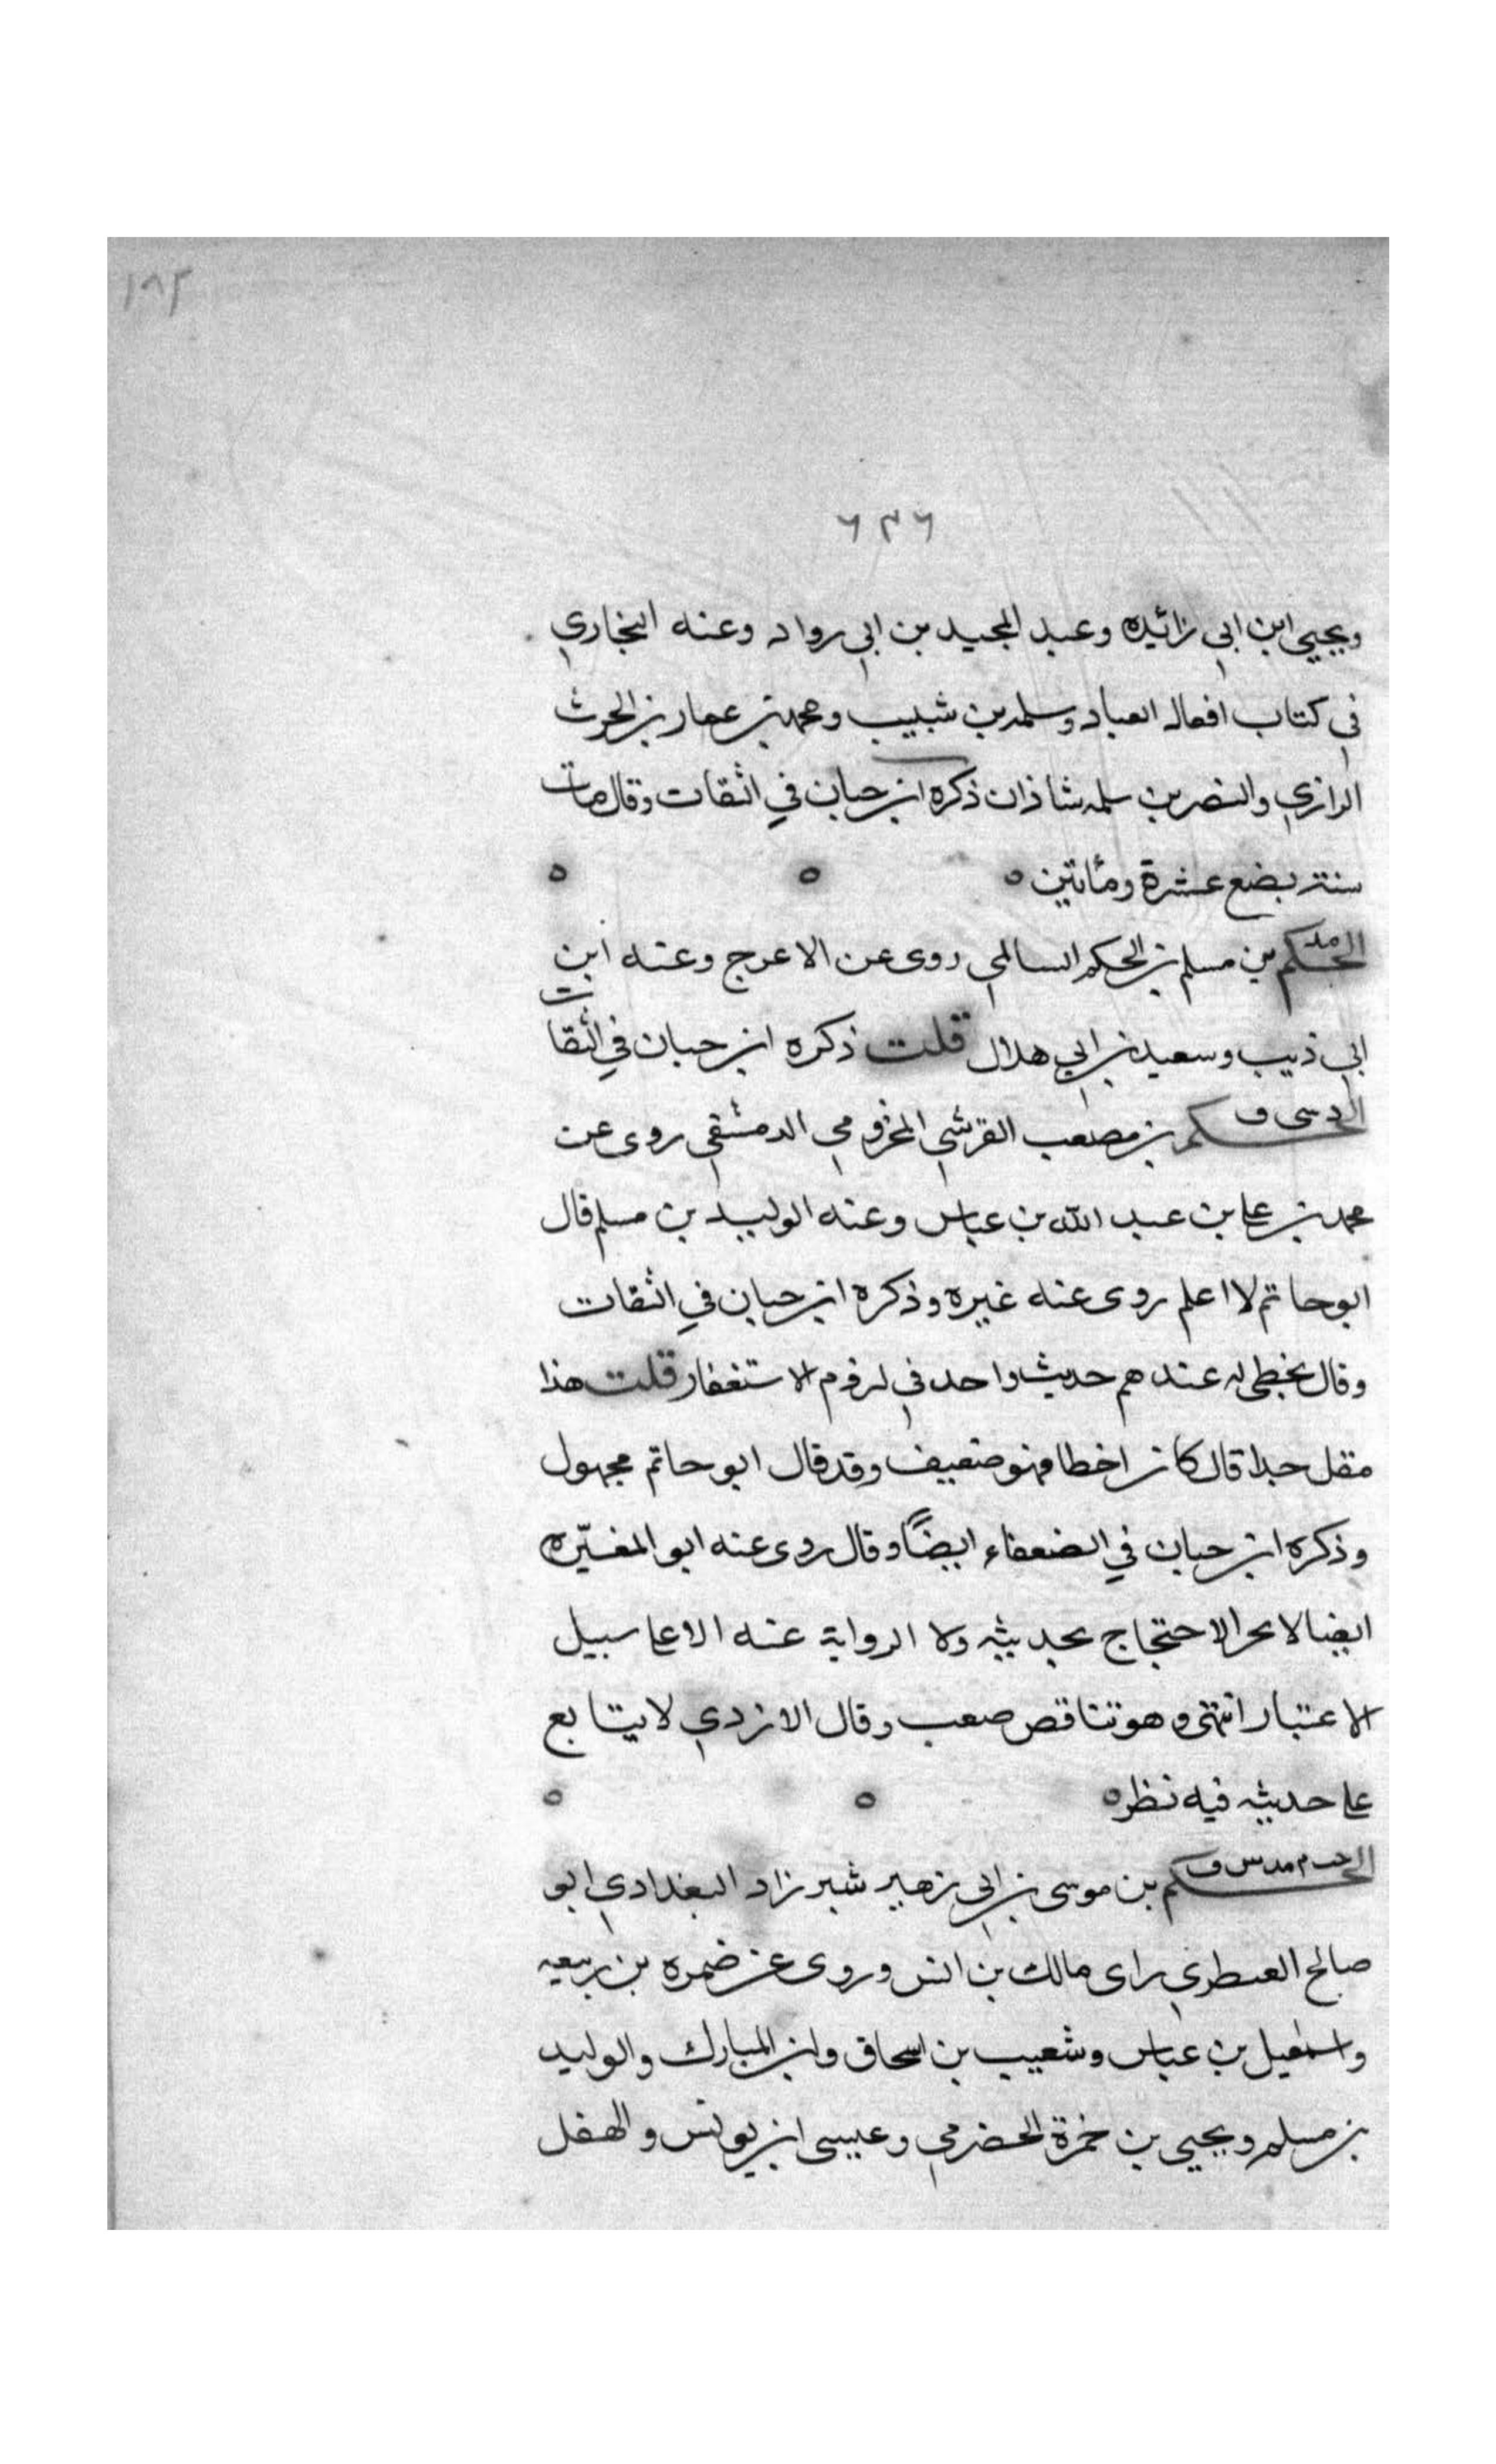 ١٨٢
٦٣٦
ويحيى ابن ابي زائيده وعبد المجيد بن ابي رواد وعنه البخاري
في كتاب افعال العباد وسلمه بن شبيب ومحمد بن عمار بن الحرث
الرازي والنضر بن سلمه شاذان ذكره ابن حبان في الثقات وقال مات
سنة بضع عشرة ومأتين ه ه ه
الحكم بن مسلم بن الحكم السالمي روى عن الاعرج وعنه ابن
ابي ذيب وسعيد بن ابي هلال قلت ذكره ابن حبان في الثقات
الحكم بن مصعب القرشي المخزومي الدمشقي روى عن
محمد بن علي بن عبد الله بن عباس وعنه الوليد بن مسلم قال
ابو حاتم لا اعلم روى عنه غيره وذكره ابن حبان في الثقات
وقال يخطى له عندهم حديث واحد في لزوم الاستغفار قلت هذا
مقل جدا قال كان اخطا فهو ضعيف وقد قال ابو حاتم مجهول
وذكره ابن حبان في الضعفاء ايضًا وقال روى عنه ابو المغيّره
ايضا لا الاحتجاج بحديثه ولا الرواية عنه الا علي سبيل
الاعتبار انتهى وهو تناقص صعب وقال الازدي لا يتابع
علي حديثه فيه نظر ه ه ه
الحكم بن موسى بن ابي زهير شيرزاد البغدادي ابو
صالح راى مالك بن انس وروى عن ضمره بن ربيعه
واسمعيل بن عباس وشعيب بن اسحاق وابن المبارك والوليد
بن مسلم ويحيى بن حمزة الحضرمي وعيسى ابن يونس والهقل